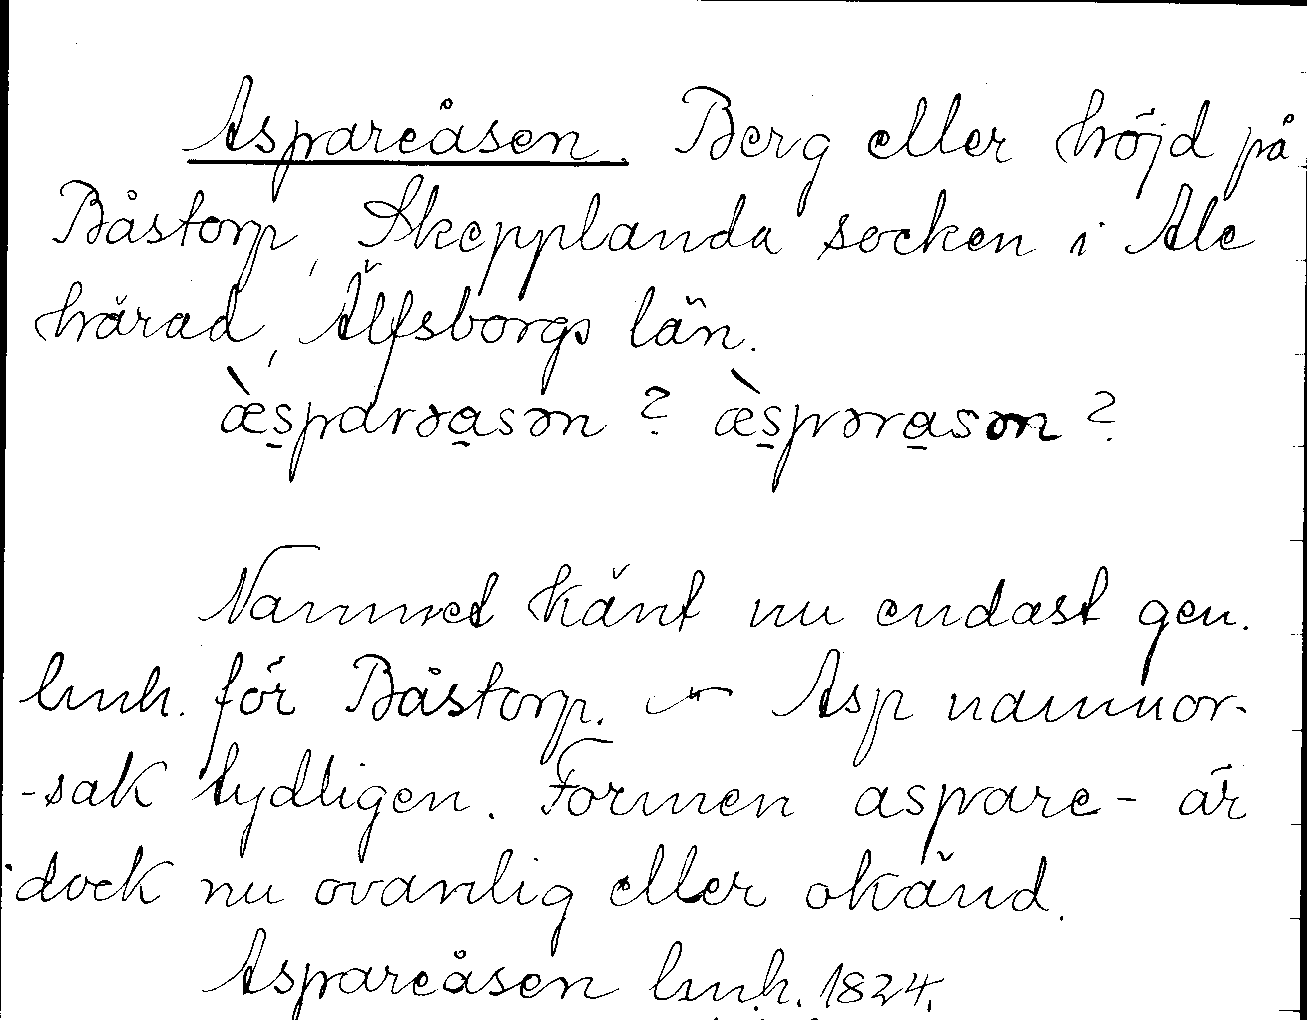 Aspareåsen. Berg eller höjd på
Båstorp, Skepplanda socken i Ale
härad, Älfsborgs län.
æ̀sparəasən ? æ̀spərasən ?
Namnet känt nu endast gen.
lmh. för Båstorp. Asp namnor-
-sak tydligen. Formen aspare- är
dock nu ovanlig eller okänd.
Aspareåsen lmh. 1824.